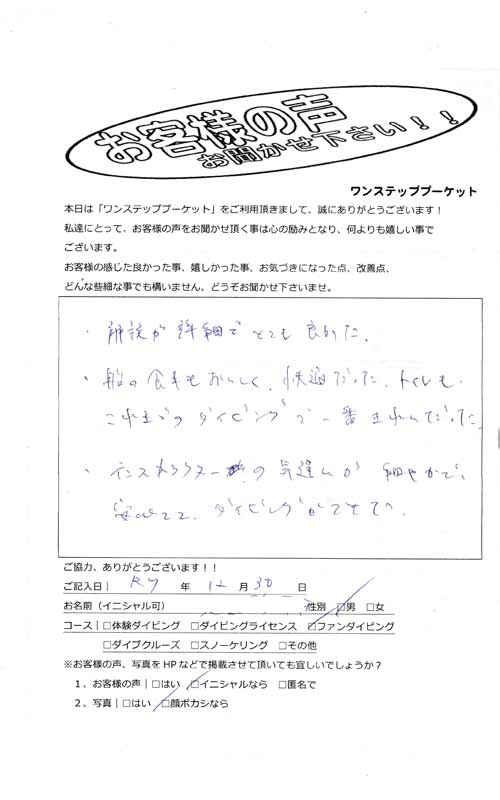 お客様の声
お聞かせ下さい！！
ワンステッププーケット
本日は「ワンステッププーケット」をご利用頂きまして、誠にありがとうございます！
私達にとって、お客様の声をお聞かせ頂く事は心の励みとなり、何よりも嬉しい事で
ございます。
お客様の感じた良かった事、嬉しかった事、お気づきになった点、改善点、
どんな些細な事でも構いません、どうぞお聞かせ下さいませ。
・解説が詳細でとても良かった。
・船の食事もおいしく、快適だった。トイレも
これまでのダイビングで一番きれいだった
・インストラクターの気遣いが細やかで、
安心して、ダイビングができた。
ご協力、ありがとうございます！！
ご記入日| R7 年 12 月 30 日
お名前（イニシャル可） 性別 □男 □女
コース|□体験ダイビング □ダイビングライセンス □ファンダイビング
□ダイブクルーズ □スノーケリング □その他
※お客様の声、写真を HP などで掲載させて頂いても宜しいでしょうか？
１、お客様の声|□はい □イニシャルなら □匿名で
２、写真|□はい □顔ボカシなら